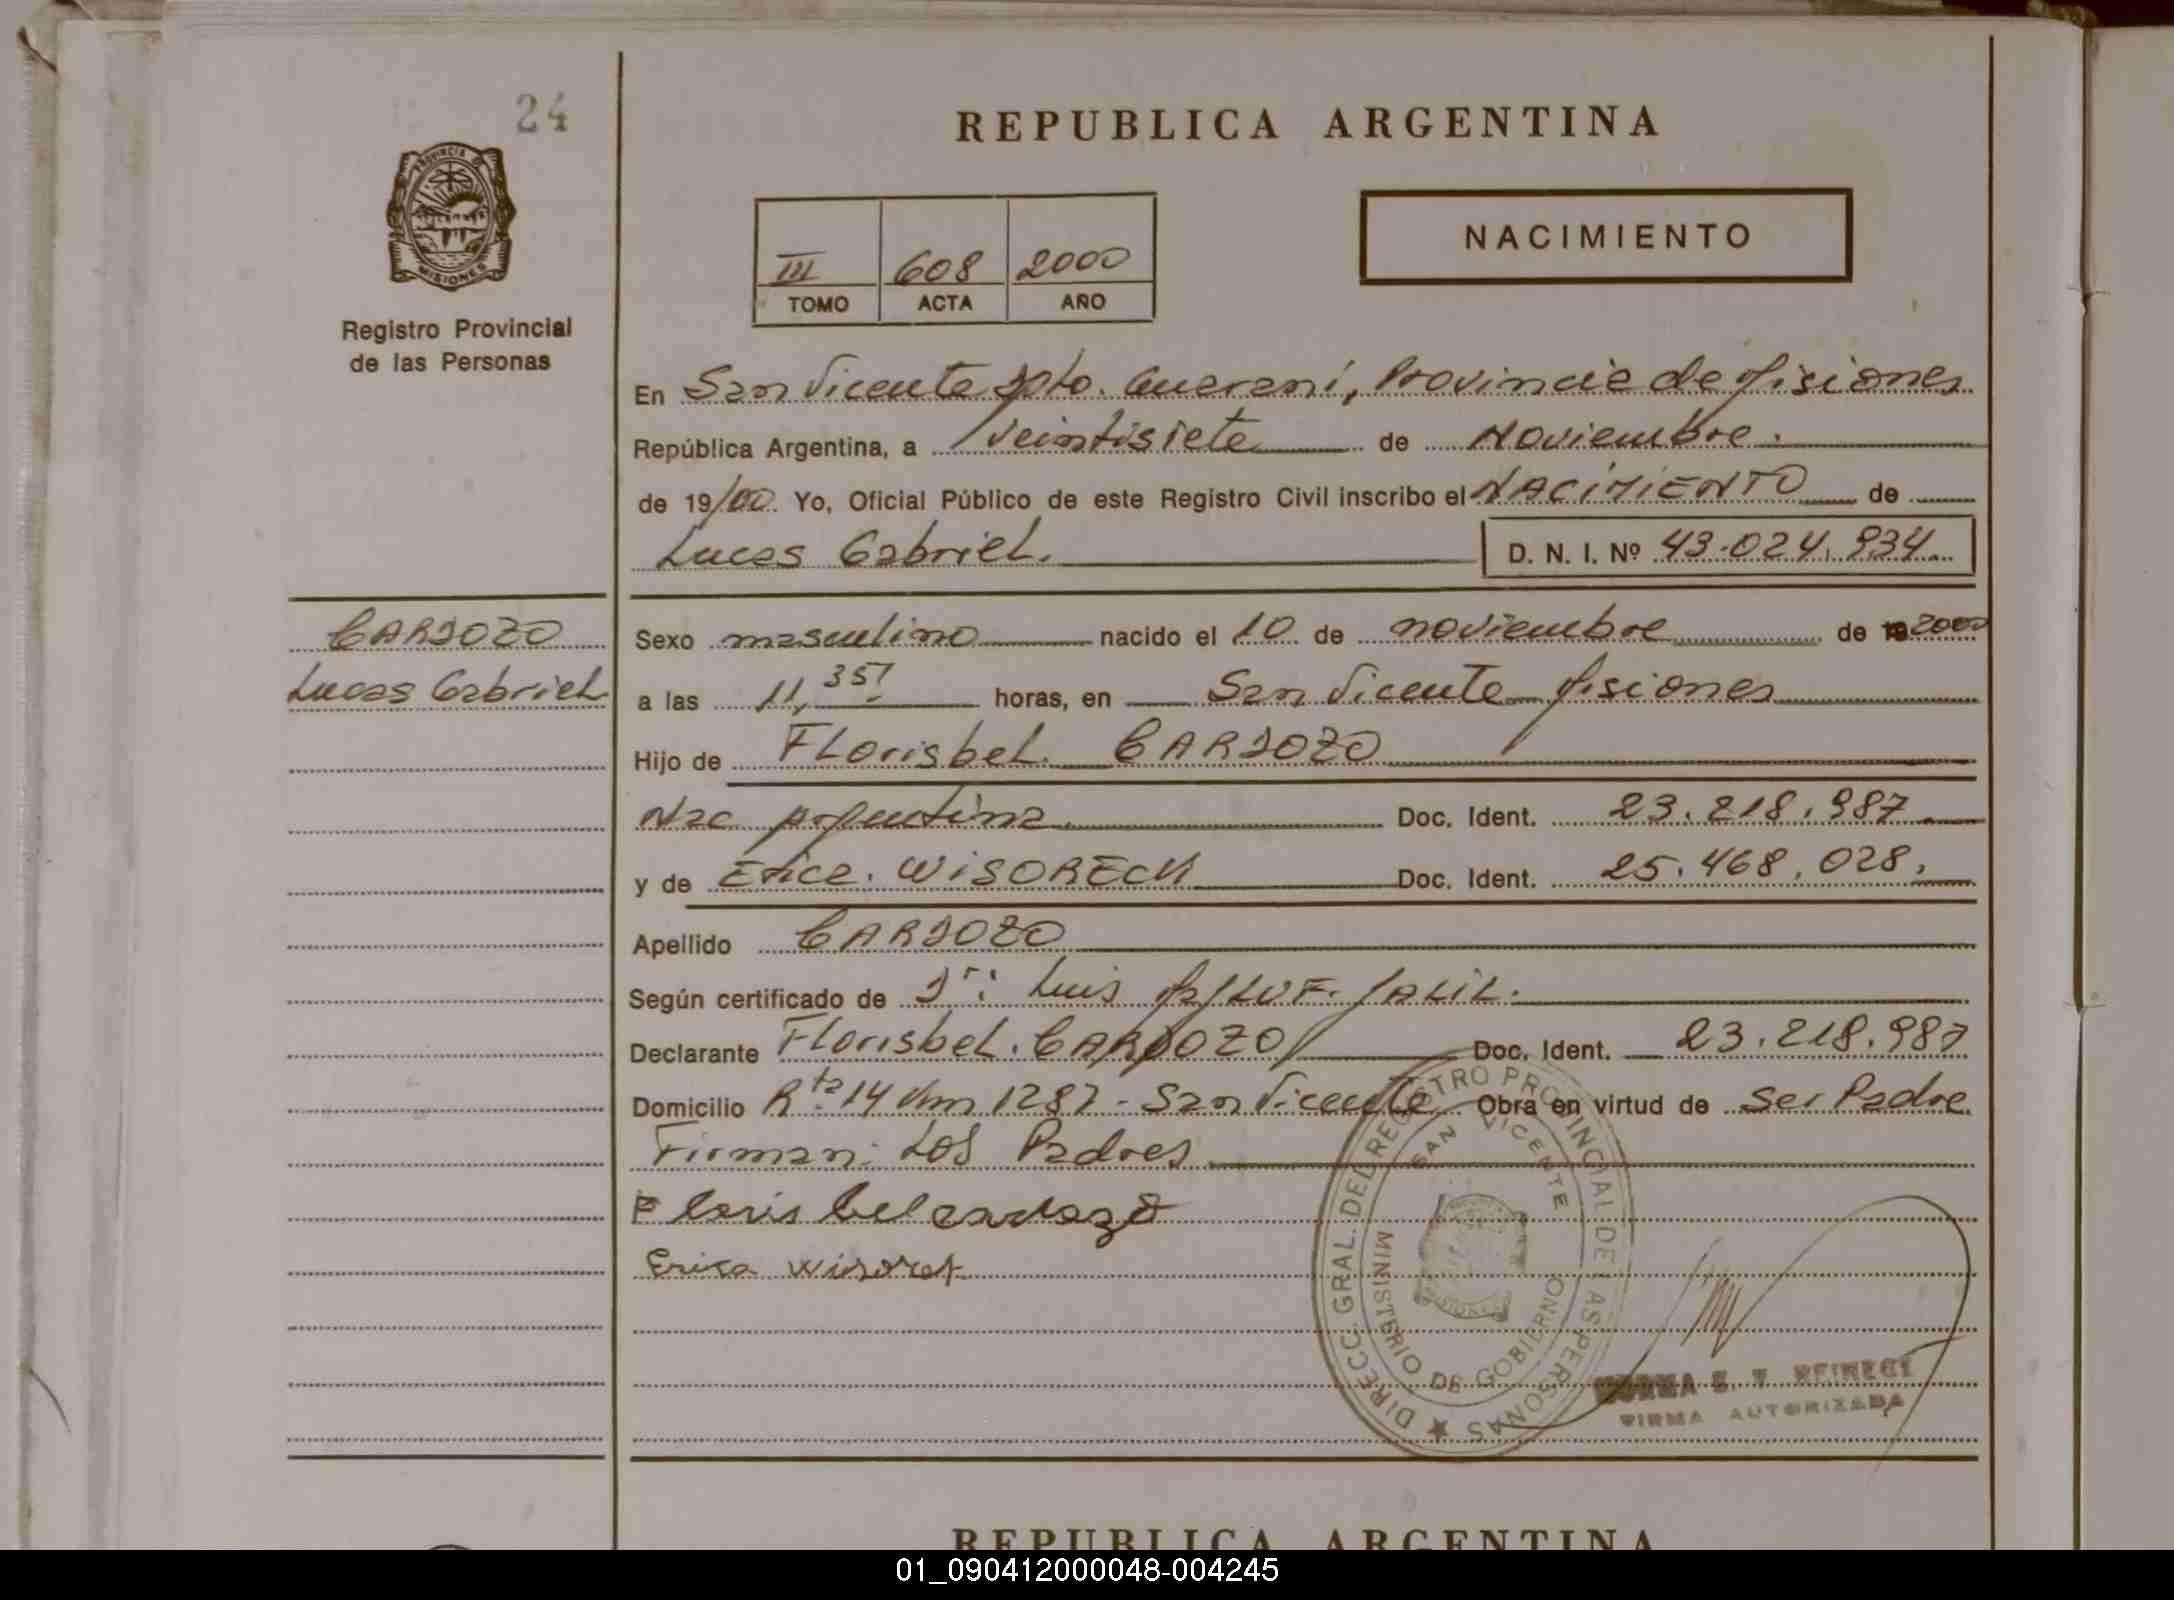 24
REPUBLICA ARGENTINA
PROVINCIA DE
MISIONES
Registro Provincial
de las Personas
III 608 2000
TOMO ACTA AÑO
NACIMIENTO
En San Vicente Dpto. Guaraní, Provincia de Misiones
República Argentina, a Veintisiete de Noviembre.
de 19/00. Yo, Oficial Público de este Registro Civil inscribo el NACIMIENTO de
Lucas Gabriel. D. N. I. Nº 43.024.934
CARDOZO
Lucas Gabriel
Sexo masculino nacido el 10 de noviembre de 2000
a las 11,35 horas, en San Vicente Misiones
Hijo de Florisbel. CARDOZO
Nac Argentina Doc. Ident. 23.218.987
y de Erica. WISORECK Doc. Ident. 25.468.028.
Apellido CARDOZO
Según certificado de Dr: Luis JALIL.
Declarante Florisbel. CARDOZO Doc. Ident. 23.218.987
Domicilio Rta 14 Km 1287 - San Vicente Obra en virtud de Ser Padre
Firman: Los Padres
Florisbel cardozo
Erica wisoret
DIRECC. GRAL. DEL REGISTRO PROVINCIAL DE LAS PERSONAS
SAN VICENTE
MINISTERIO DE GOBIERNO
NORMA
FIRMA AUTORIZADA
REPUBLICA ARGENTINA
01_090412000048-004245